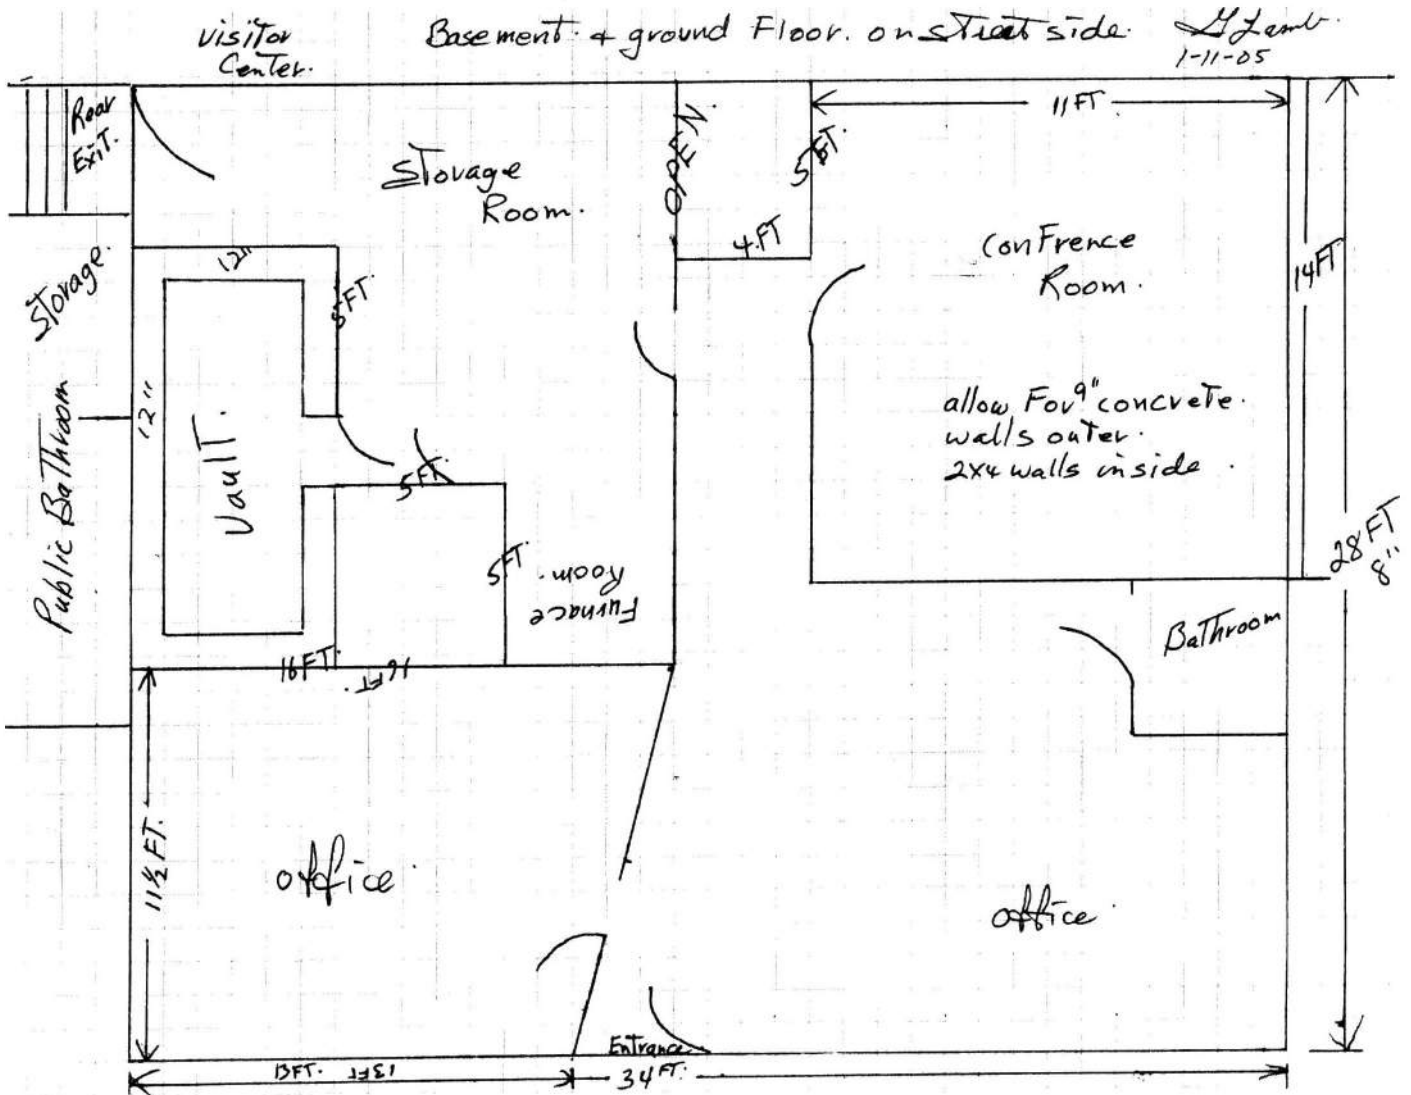 visitor
Center.
Basement. & ground Floor. on street side.
G Lamb.
1-11-05
Rear
Exit.
Storage
Room.
OPEN
5 FT.
4.FT
11 FT.
Confrence
Room.
14 FT
allow For 9" concrete.
walls outer.
2x4 walls inside.
28 FT
8"
Storage.
Public Bathroom
12"
12"
5 FT.
Vault.
5 FT.
5 FT.
Furnace
Room.
16 FT.
16 FT.
Bathroom
11 1/2 FT.
office
office
Entrance
13FT.
13FT
34 FT.